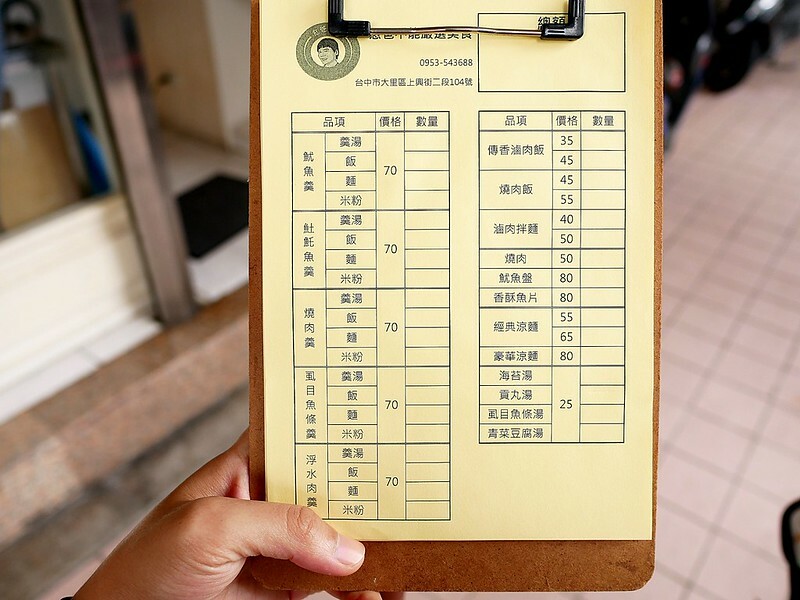 總額
0953-543688
台中市大里區上興街二段104號
品項 價格 數量
魷魚羹 羹湯 飯 麵 米粉 70
魠魠魚羹 羹湯 飯 麵 米粉 70
燒肉羹 羹湯 飯 麵 米粉 70
虱目魚條羹 羹湯 飯 麵 米粉 70
浮水肉羹 羹湯 飯 麵 米粉 70
品項 價格 數量
傳香滷肉飯 35
45
燒肉飯 45
55
滷肉拌麵 40
50
燒肉 50
魷魚盤 80
香酥魚片 80
經典涼麵 55
65
豪華涼麵 80
海苔湯
貢丸湯
虱目魚條湯
青菜豆腐湯
25